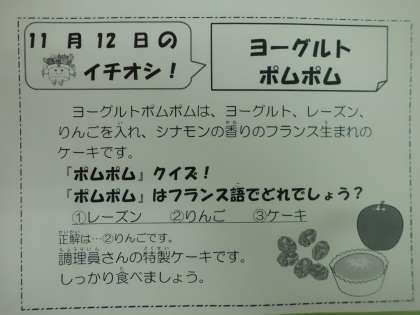 11 月 12 日の
イチオシ！
ヨーグルト
ポムポム
ヨーグルトポムポムは、ヨーグルト、レーズン、
りんごを入れ、シナモンの香りのフランス生まれの
ケーキです。
『ポムポム』クイズ！
『ポムポム』はフランス語でどれでしょう？
①レーズン　②りんご　③ケーキ
正解は…②りんごです。
調理員さんの特製ケーキです。
しっかり食べましょう。